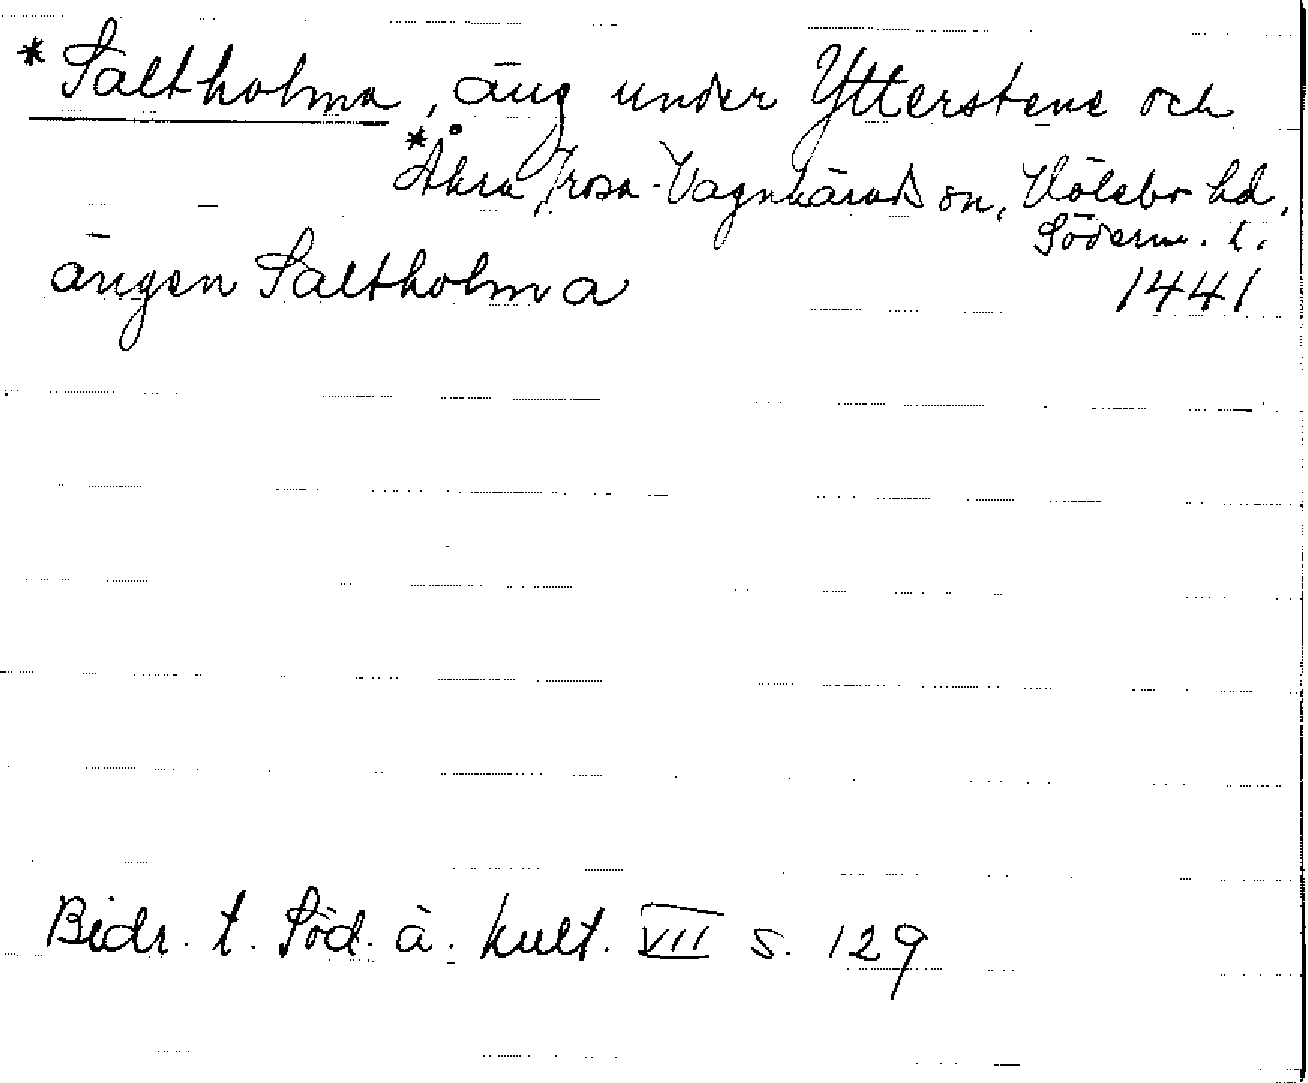 *Saltholma, äng under Ytterstene och
*Åkra, Trosa-Vagnhärads sn, Hölebo hd,
Söderm. l.
ängen Saltholma 1441
Bidr. t. Söd. ä. kult. VII s. 129